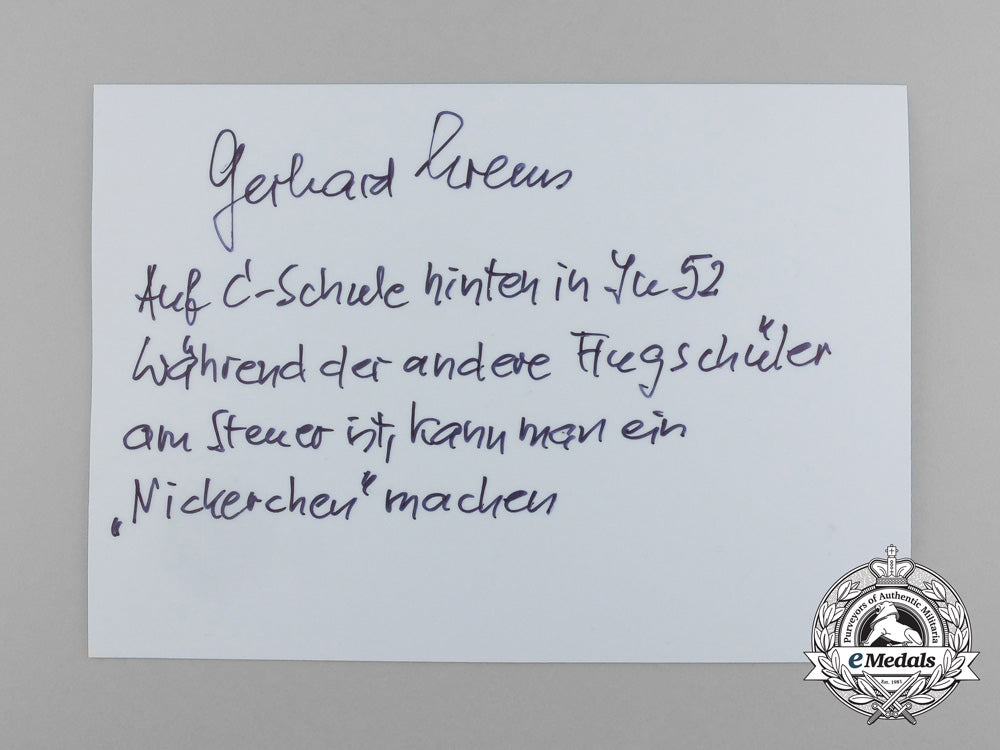 Gerhard Krems
Auf C-Schule hinten in Ju 52
Während der andere Flugschüler
am Steuer ist, kann man ein
„Nickerchen“ machen
Purveyors of Authentic Militaria
eMedals
Est. 1981